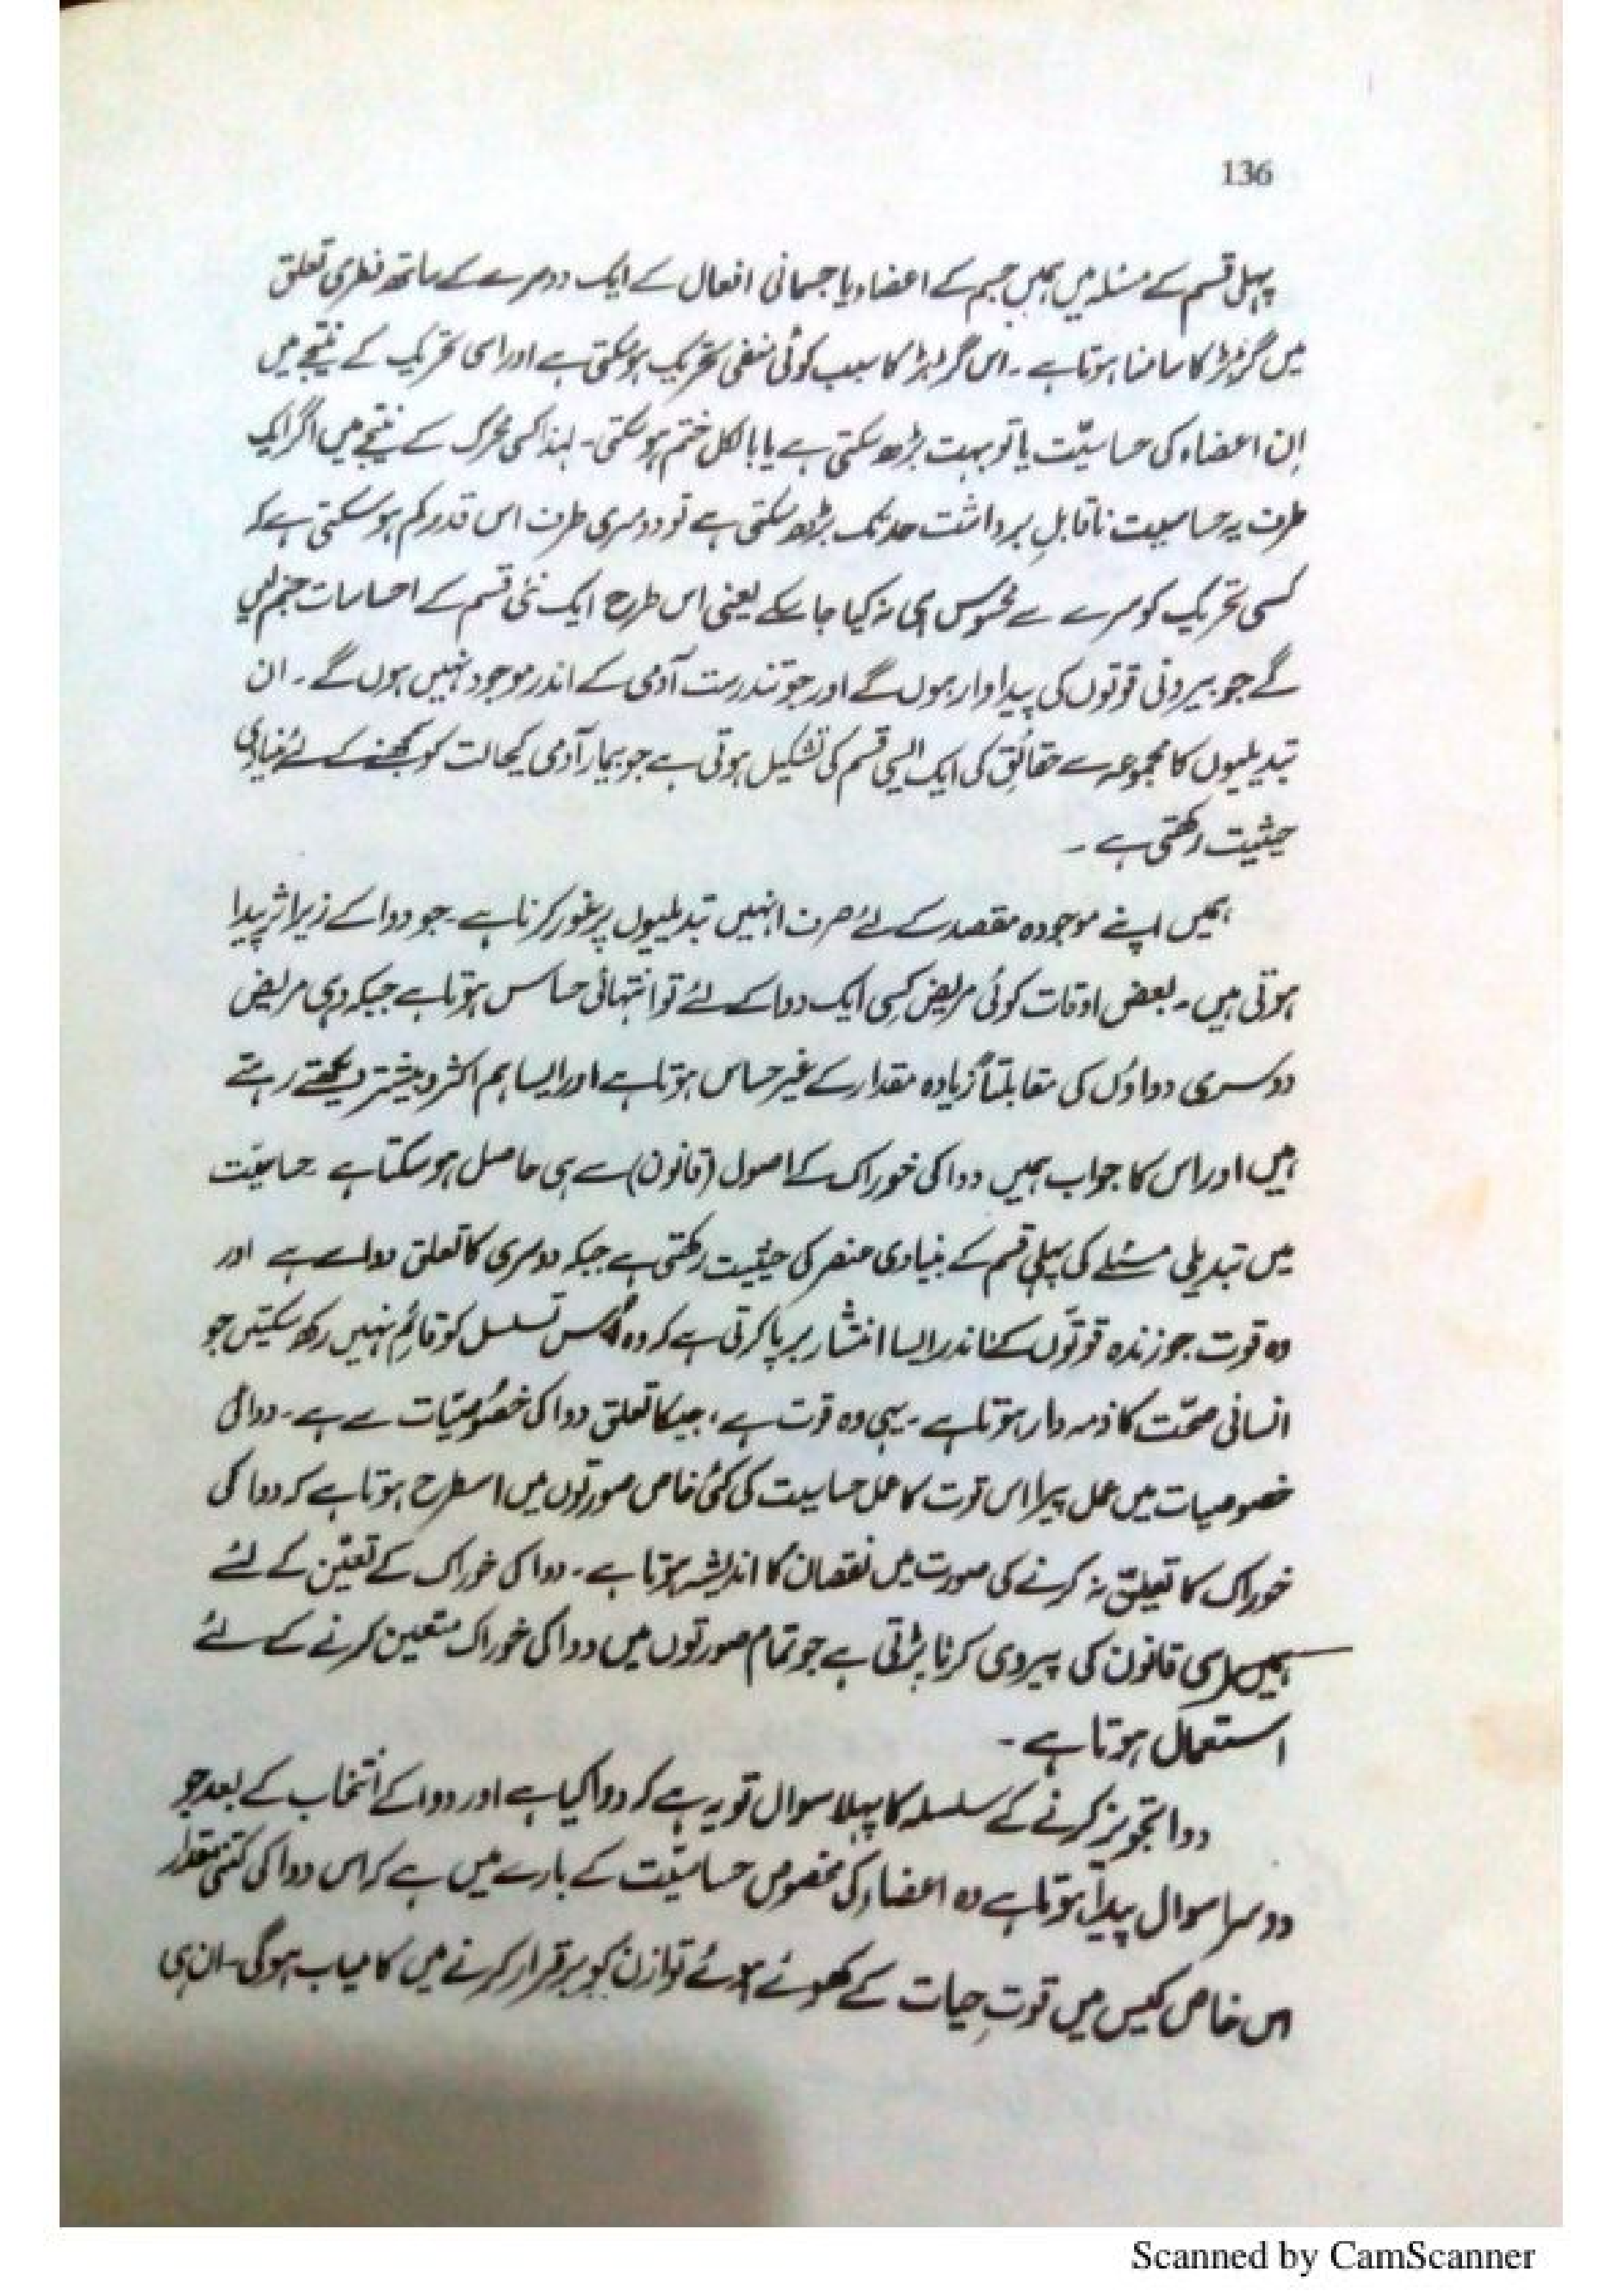 136
پہلی قسم کے مسئلہ میں ہمیں جسم کے اعضاء یا جسمانی افعال کے ایک دوسرے کے ساتھ فطری تعلق
میں گڑبڑ کا سامنا ہوتا ہے ۔ اس گڑبڑ کا سبب کوئی منفی تحریک ہو سکتی ہے اور اسی تحریک کے نتیجے میں
اِن اعضاء کی حساسیّت یا تو بہت بڑھ سکتی ہے یا بالکل ختم ہو سکتی ۔ لہٰذا کسی محرک کے نتیجے میں اگر ایک
طرف یہ حساسیت ناقابلِ برداشت حد تک بڑھ سکتی ہے تو دوسری طرف اس قدر کم ہو سکتی ہے کہ
کسی تحریک کو سرے سے محسوس ہی نہ کیا جا سکے یعنی اس طرح ایک نئی قسم کے احساسات جنم لیں
گے جو بیرونی قوتوں کی پیداوار ہوں گے اور جو تندرست آدمی کے اندر موجود نہیں ہوں گے ۔ ان
تبدیلیوں کا مجموعہ سے حقائق کی ایک ایسی قسم کی تشکیل ہوتی ہے جو بیمار آدمی کیحالت کو سمجھنے کے لئے بنیادی
حیثیت رکھتی ہے ۔
ہمیں اپنے موجودہ مقصد کے لئے صرف انہیں تبدیلیوں پر غور کرنا ہے ۔ جو دوا کے زیر اثر پیدا
ہوتی ہیں ۔ بعض اوقات کوئی مریض کسِی ایک دوا کے لئے تو انتہائی حساس ہوتا ہے جبکہ وہی مریض
دوسری دواؤں کی مقابلتاً زیادہ مقدار کے غیر حساس ہوتا ہے اور ایسا ہم اکثر و بیشتر دیکھتے رہتے
ہیں اور اس کا جواب ہمیں دوا کی خوراک کے اصول (قانون) سے ہی حاصل ہو سکتا ہے ۔ حساسیّت
میں تبدیلی مسئلے کی پہلی قسم کے بنیادی عنصر کی حیثیت رکھتی ہے جبکہ دوسری کا تعلق دوا سے ہے اور
وہ قوت جو زندہ قوتوں کے اندر ایسا انتشار برپا کرتی ہے کہ وہ اُس تسلسل کو قائم نہیں رکھ سکتیں جو
انسانی صحّت کا ذمہ دار ہوتا ہے ۔ یہی وہ قوت ہے ، جسکا تعلق دوا کی خصُوصیّات سے ہے ۔ دوا کی
خصوصیات میں عمل پیرا اس قوت کا عمل حساسیت کی کئی خاص صورتوں میں اسطرح ہوتا ہے کہ دوا کی
خوراک کا تعیلق نہ کرنے کی صورت میں نقصان کا اندیشہ ہوتا ہے ۔ دوا کی خوراک کے تعیّن کے لئے
ہمیں اسی قانون کی پیروی کرنا پڑتی ہے جو تمام صورتوں میں دوا کی خوراک متعین کرنے کے لئے
استعمال ہوتا ہے ۔
دوا تجویز کرنے کے سلسلہ کا پہلا سوال تو یہ ہے کہ دوا کیا ہے اور دوا کے انتخاب کے بعد جو
دوسرا سوال پیدا ہوتا ہے وہ اعضاء کی مخصوص حساسیّت کے بارے میں ہے کہ اس دوا کی کتنی مقدار
اس خاص کیس میں قوتِ حیات کے کھوئے ہوئے توازن کو برقرار کرنے میں کامیاب ہوگی ۔ ان ہی
Scanned by CamScanner